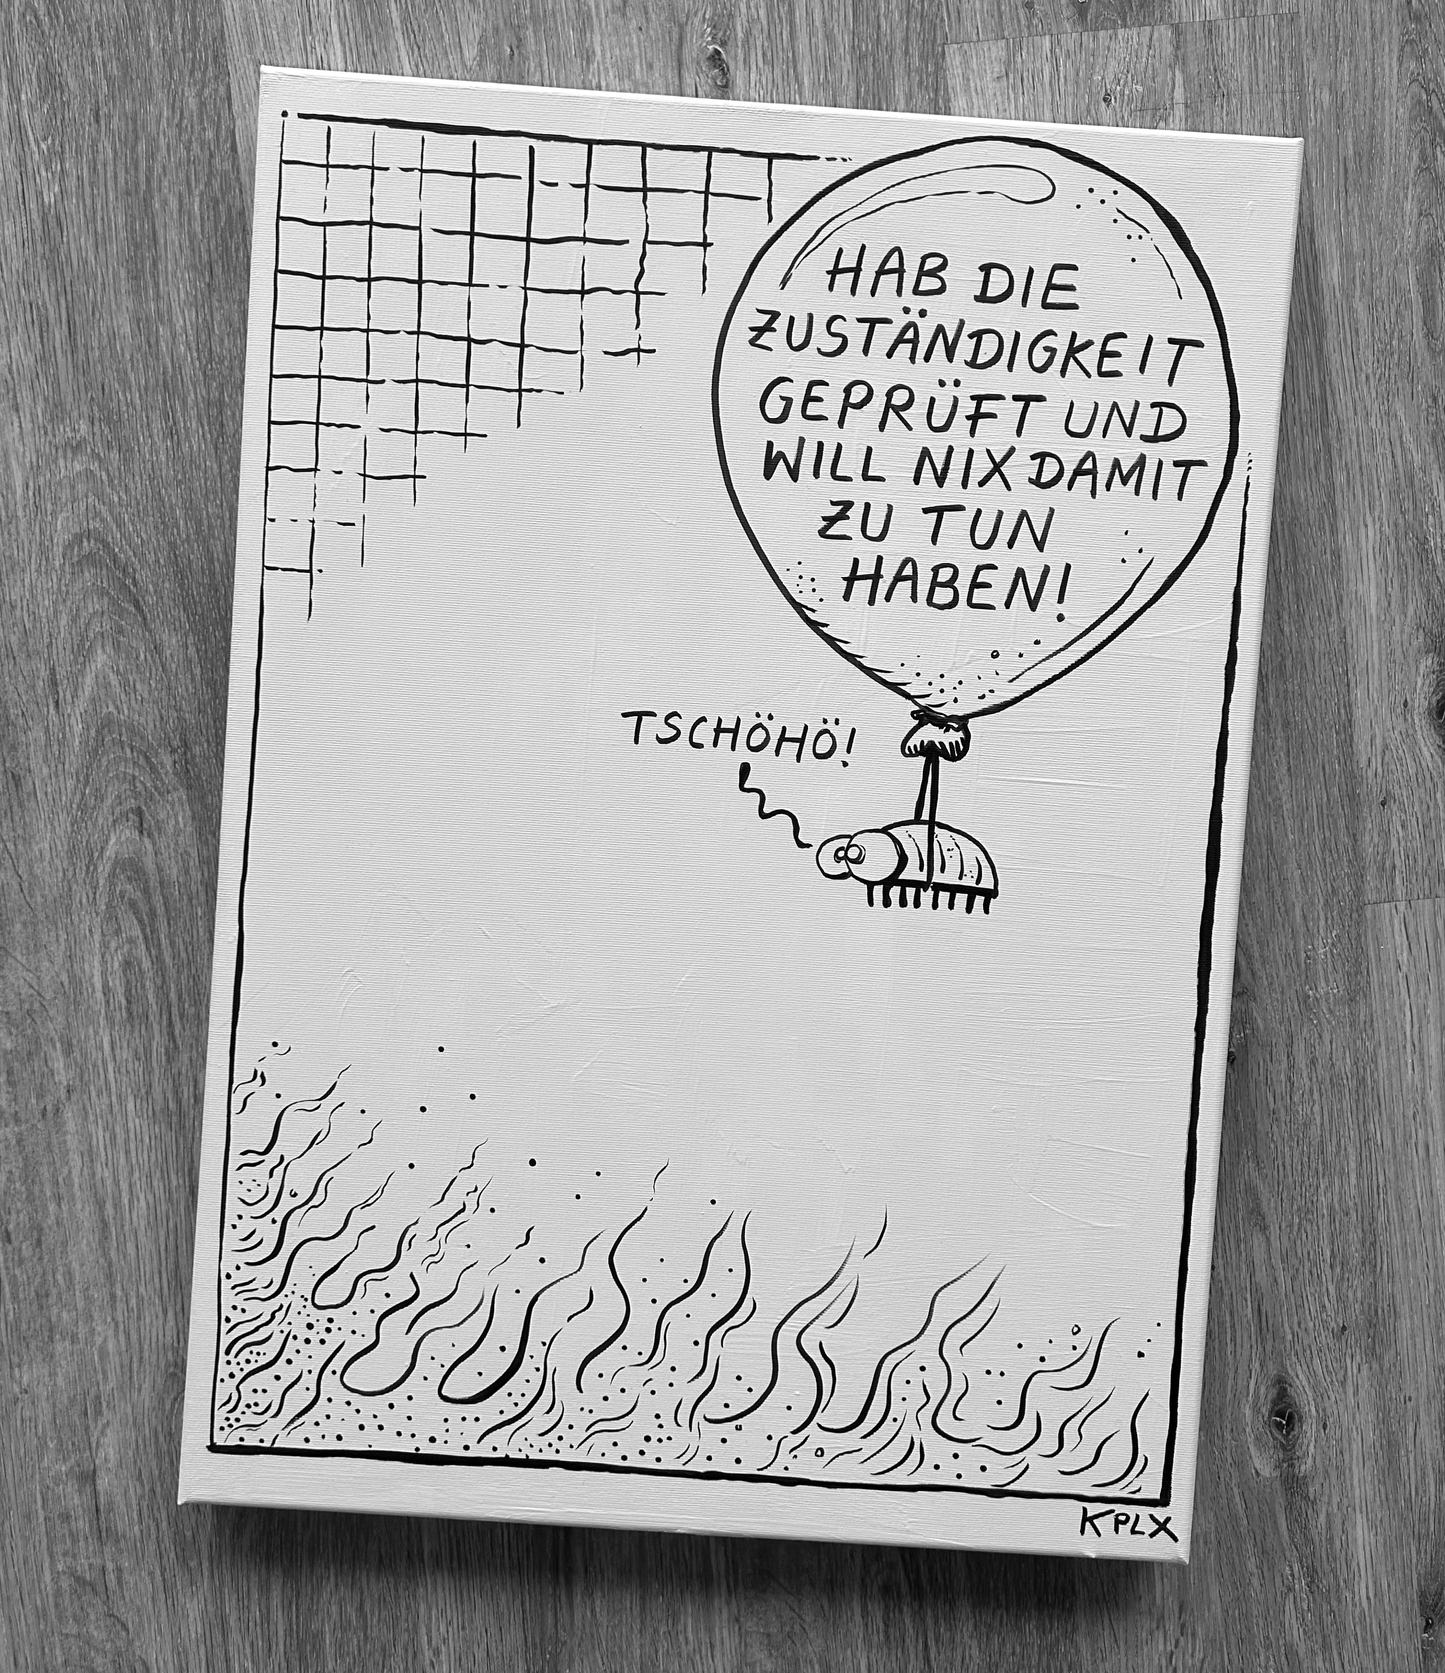 HAB DIE
ZUSTÄNDIGKEIT
GEPRÜFT UND
WILL NIX DAMIT
ZU TUN
HABEN!
TSCHÖHÖ!
KPLX